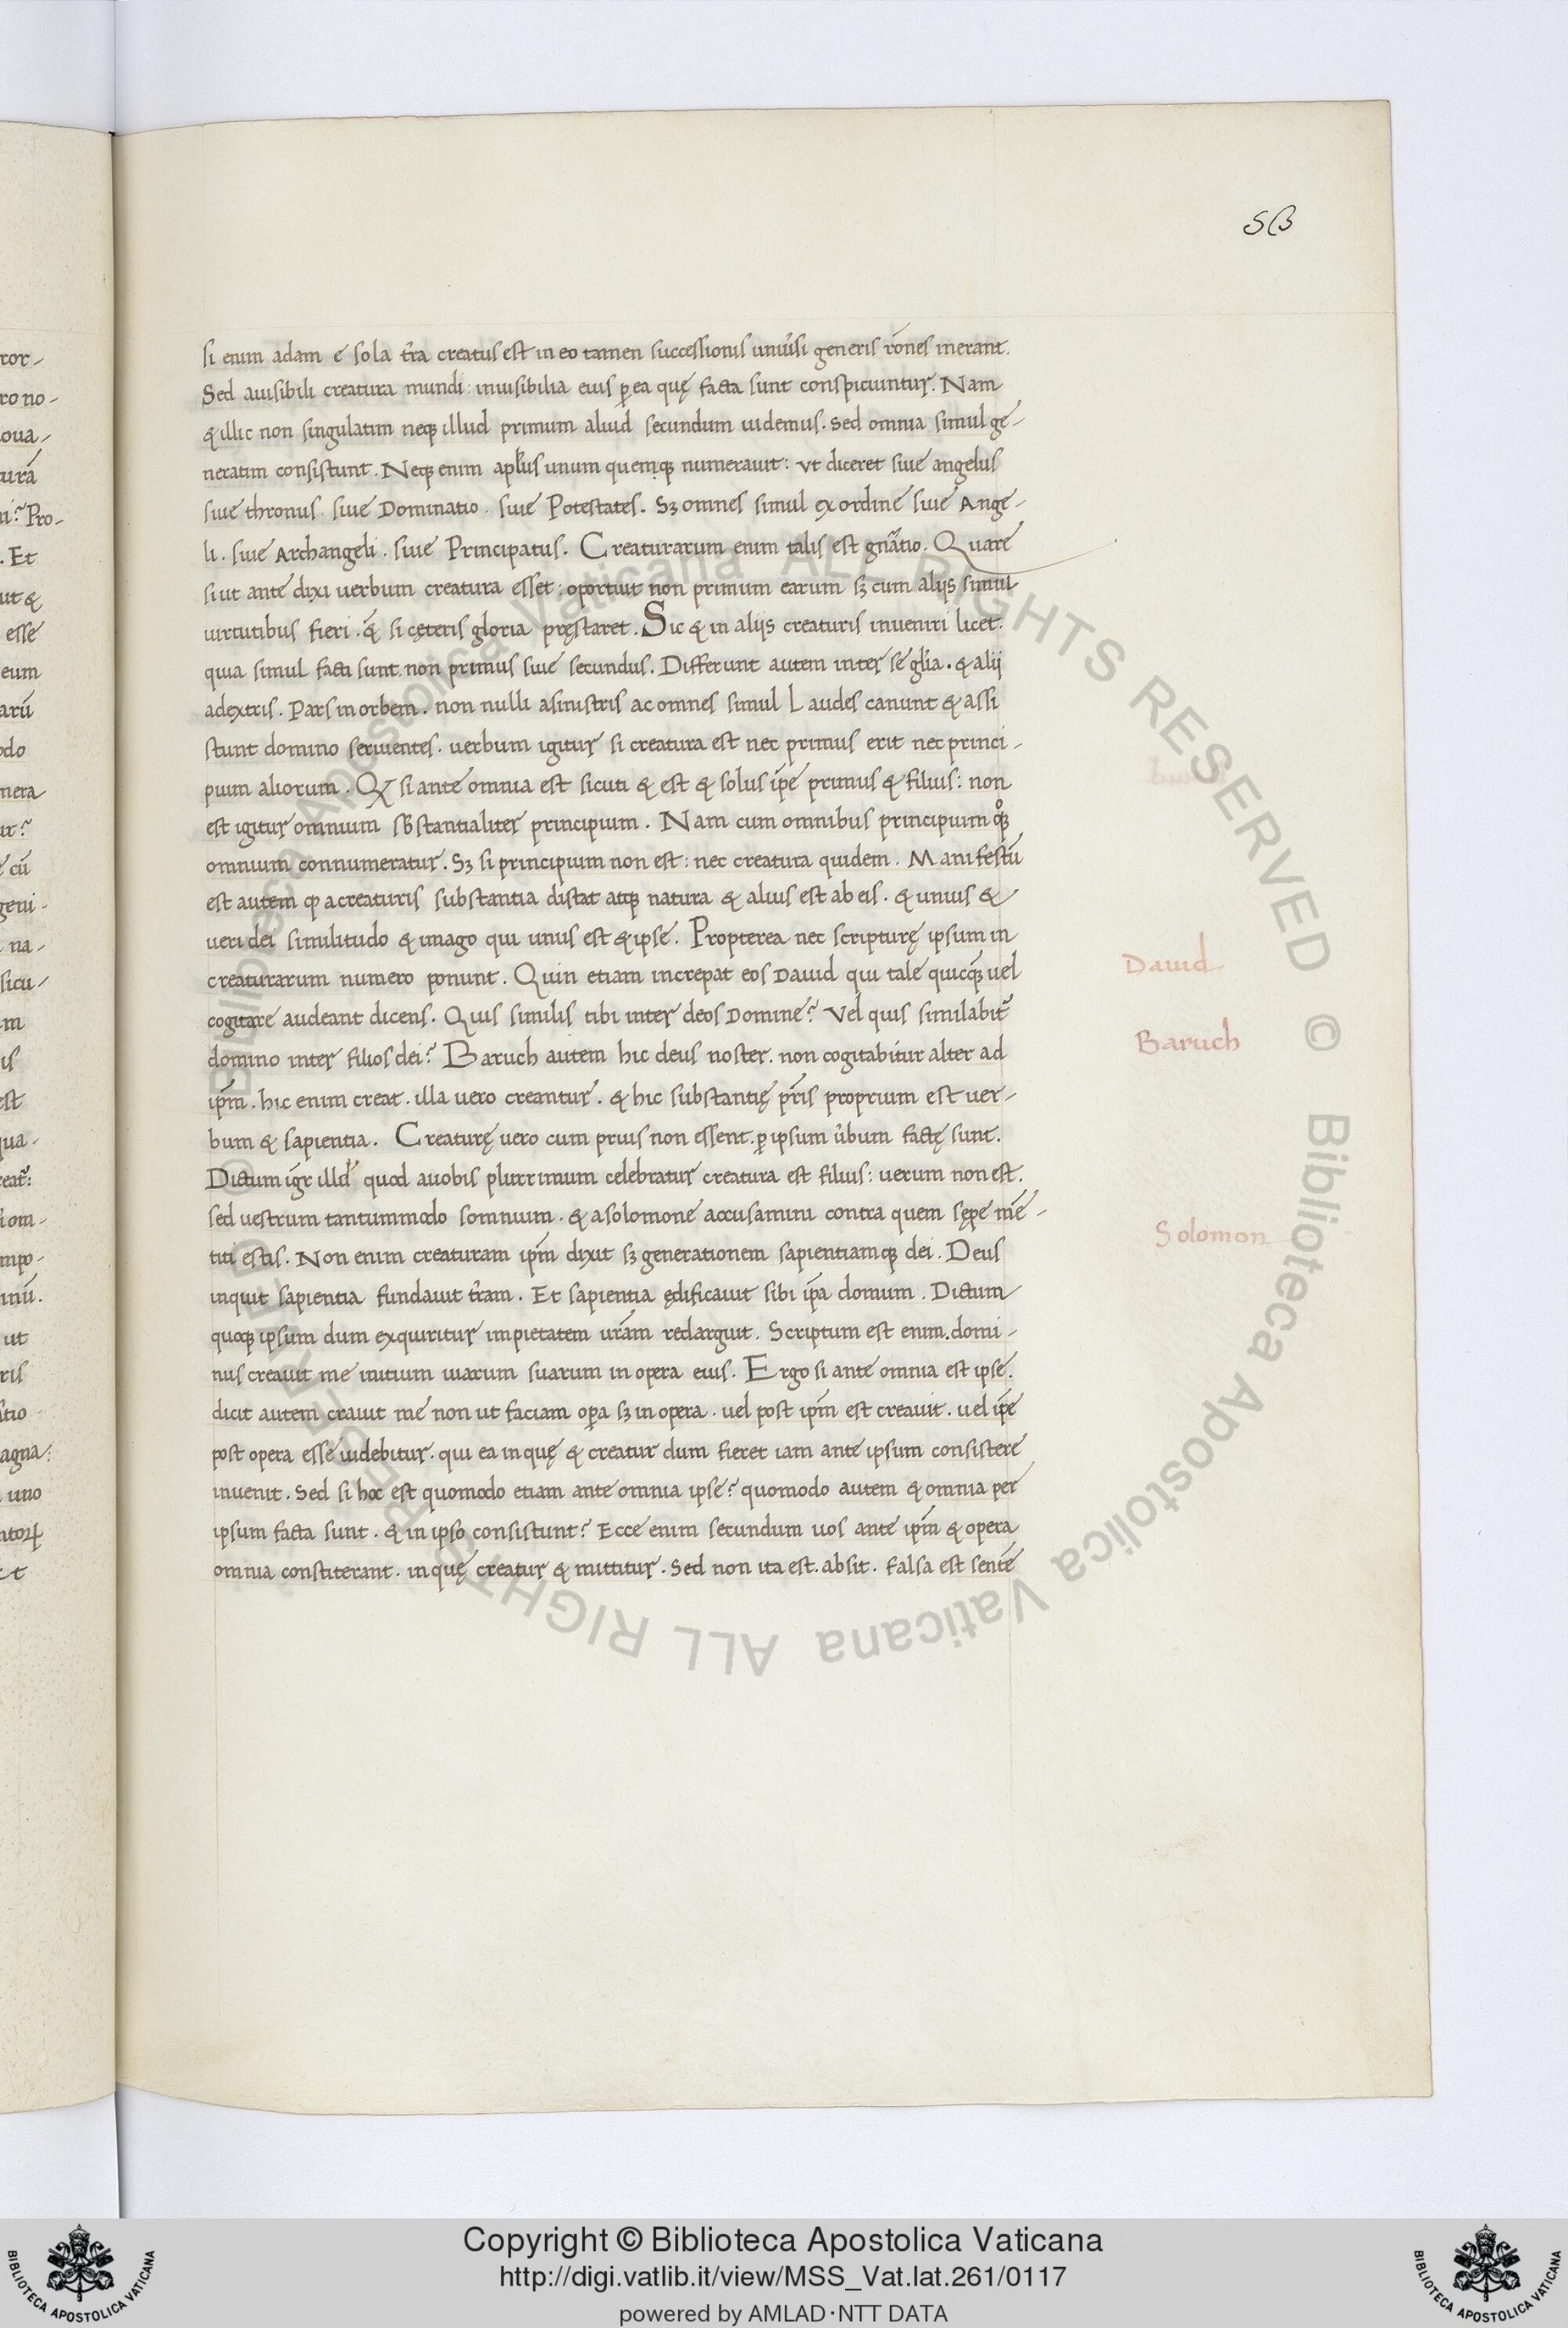 58
si enim adam é sola t̃ra creatus est in eo tamen successionis uniũsi generis rõnes inerant.
Sed auisibili creatura mundi: inuisibilia eius p̱ ea quę facta sunt conspiciuntur. Nam
& illic non singulatim neq; illud primum aliud secundum uidemus. sed omnia simul ge-
neratim consistunt. Neq; enim aplus unum quemq; numerauit: vt diceret siue angelus
siue thronus. siue Dominatio. siue Potestates. Sꝫ omnes simul ex ordine siue Ange-
li. siue Archangeli. siue Principatus. Creaturarum enim talis est gnãtio. Quare
si ut ante dixi uerbum creatura esset: oportuit non primum earum sꝫ cum alijs simul
uirtutibus fieri. & si cęteris gloria pręstaret. Sic & in alijs creaturis inueniri licet.
quia simul facti sunt. non primus siue secundus. Differunt autem inter se glia. & alii
adextris. Pars in orbem. non nulli asinistris ac omnes simul Laudes canunt & assi
stunt domino seruientes. uerbum igitur si creatura est nec primus erit nec princi-
pium aliorum. Qꝫ si ante omnia est sicuti & est & solus ipẽ primus & filius: non
est igitur omnium sƀstantialiter principium. Nam cum omnibus principium qͦꝫ
omnium connumeratur. Sꝫ si principium non est: nec creatura quidem. Manifestũ
est autem ꝙ acreaturis substantia distat atq; natura & alius est ab eis. & unius &
ueri dei similitudo & imago qui unus est & ipse. Propterea nec scripturę ipsum in
creaturarum numero ponunt. Quin etiam increpat eos Dauid qui tale quicq̃ uel
cogitare audeant dicens. Quis similis tibi inter deos Domine? Vel quis similabit̃
domino inter filios dei? Baruch autem hic deus noster. non cogitabitur alter ad
ipm̃. hic enim creat. illa uero creantur. & hic substantię pr̃is proprium est uer-
bum & sapientia. Creaturę uero cum prius non essent. p̱ ipsum ũbum factę sunt.
Dictum igr̃ illd quod auobis plurrimum celebratur creatura est filius: uerum non est.
sed uestrum tantummodo somnium. & asolomone accusamini contra quem sępe mẽ-
titi estis. Non enim creaturam ipm̃ dixit sꝫ generationem sapientiamq; dei. Deus
inquit sapientia fundauit t̃ram. Et sapientia ędificauit sibi ip̃a domum. Dictum
quoq; ipsum dum exquiritur impietatem ur̃am redarguit. Scriptum est enim. domi-
nus creauit me initium uiarum suarum in opera eius. Ergo si ante omnia est ipse.
dicit autem crauit me non ut faciam op̱a sꝫ in opera. uel post ipm̃ est creauit. uel ip̃e
post opera esse uidebitur. qui ea in quę & creatur dum fieret iam ante ipsum consistere
inuenit. Sed si hoc est quomodo etiam ante omnia ipse? quomodo autem & omnia per
ipsum facta sunt. & in ipso consistunt? Ecce enim secundum uos ante ipm̃ & opera
omnia constiterant. in quę creatur & mittitur. Sed non ita est. absit. Falsa est sentẽ
Dauid
Baruch
Solomon
© Biblioteca Apostolica Vaticana ALL RIGHTS RESERVED © Biblioteca Apostolica Vaticana ALL RIGHTS RESERVED
Copyright © Biblioteca Apostolica Vaticana
http://digi.vatlib.it/view/MSS_Vat.lat.261/0117
powered by AMLAD·NTT DATA
BIBLIOTECA APOSTOLICA VATICANA
BIBLIOTECA APOSTOLICA VATICANA